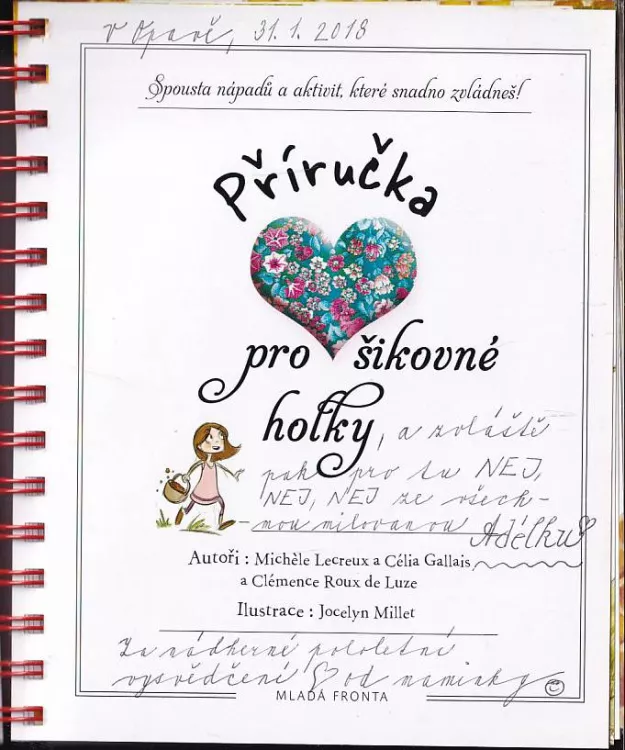 V Opavě, 31.1.2018
Spousta nápadů a aktivit, které snadno zvládneš!
Příručka
pro šikovné
holky, a zvláště
pak pro tu NEJ,
NEJ, NEJ ze všech-
mou milovanou Adélku
Autoři : Michèle Lecreux a Célia Gallais,
a Clémence Roux de Luze
Ilustrace : Jocelyn Millet
Za nádherné pololetní
vysvědčení od maminky
MLADÁ FRONTA